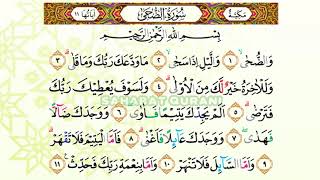 مَكِيَّة سُوْرَةُ الضُّحٰى اٰيَاتُهَا ١١
بِسْمِ اللّٰهِ الرَّحْمٰنِ الرَّحِيْمِ
وَالضُّحٰىۙ ١ وَالَّيْلِ اِذَا سَجٰىۙ ٢ مَا وَدَّعَكَ رَبُّكَ وَمَا قَلٰىۗ ٣
وَلَلْاٰخِرَةُ خَيْرٌ لَّكَ مِنَ الْاُوْلٰىۗ ٤ وَلَسَوْفَ يُعْطِيْكَ رَبُّكَ
فَتَرْضٰىۗ ٥ اَلَمْ يَجِدْكَ يَتِيْمًا فَاٰوٰىۖ ٦ وَوَجَدَكَ ضَاۤلًّا
فَهَدٰىۖ ٧ وَوَجَدَكَ عَاۤىِٕلًا فَاَغْنٰىۗ ٨ فَاَمَّا الْيَتِيْمَ فَلَا تَقْهَرْۗ
٩ وَاَمَّا السَّاۤىِٕلَ فَلَا تَنْهَرْۗ ١٠ وَاَمَّا بِنِعْمَةِ رَبِّكَ فَحَدِّثْ ١١